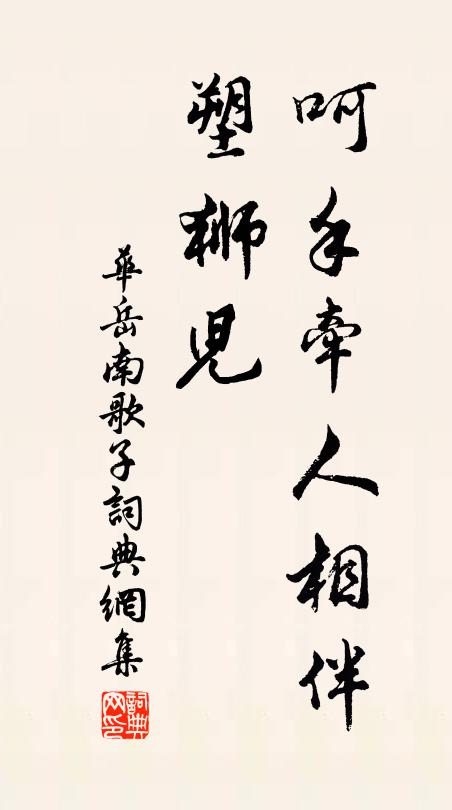 呵手牽人相伴
塑獅兒
華岳南歌子詞典網集
詞典
网印